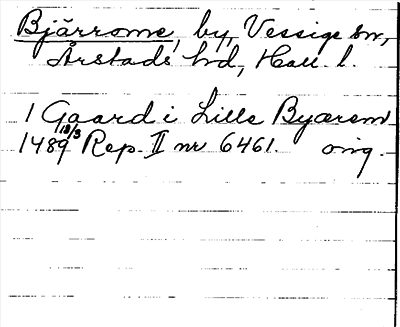 Bjärrome, by, Vessige sn,
Årstads hd, Hall. l.
1 Gaard i Lille Byærem
1489 18/3 Rep. II nr 6461. orig.